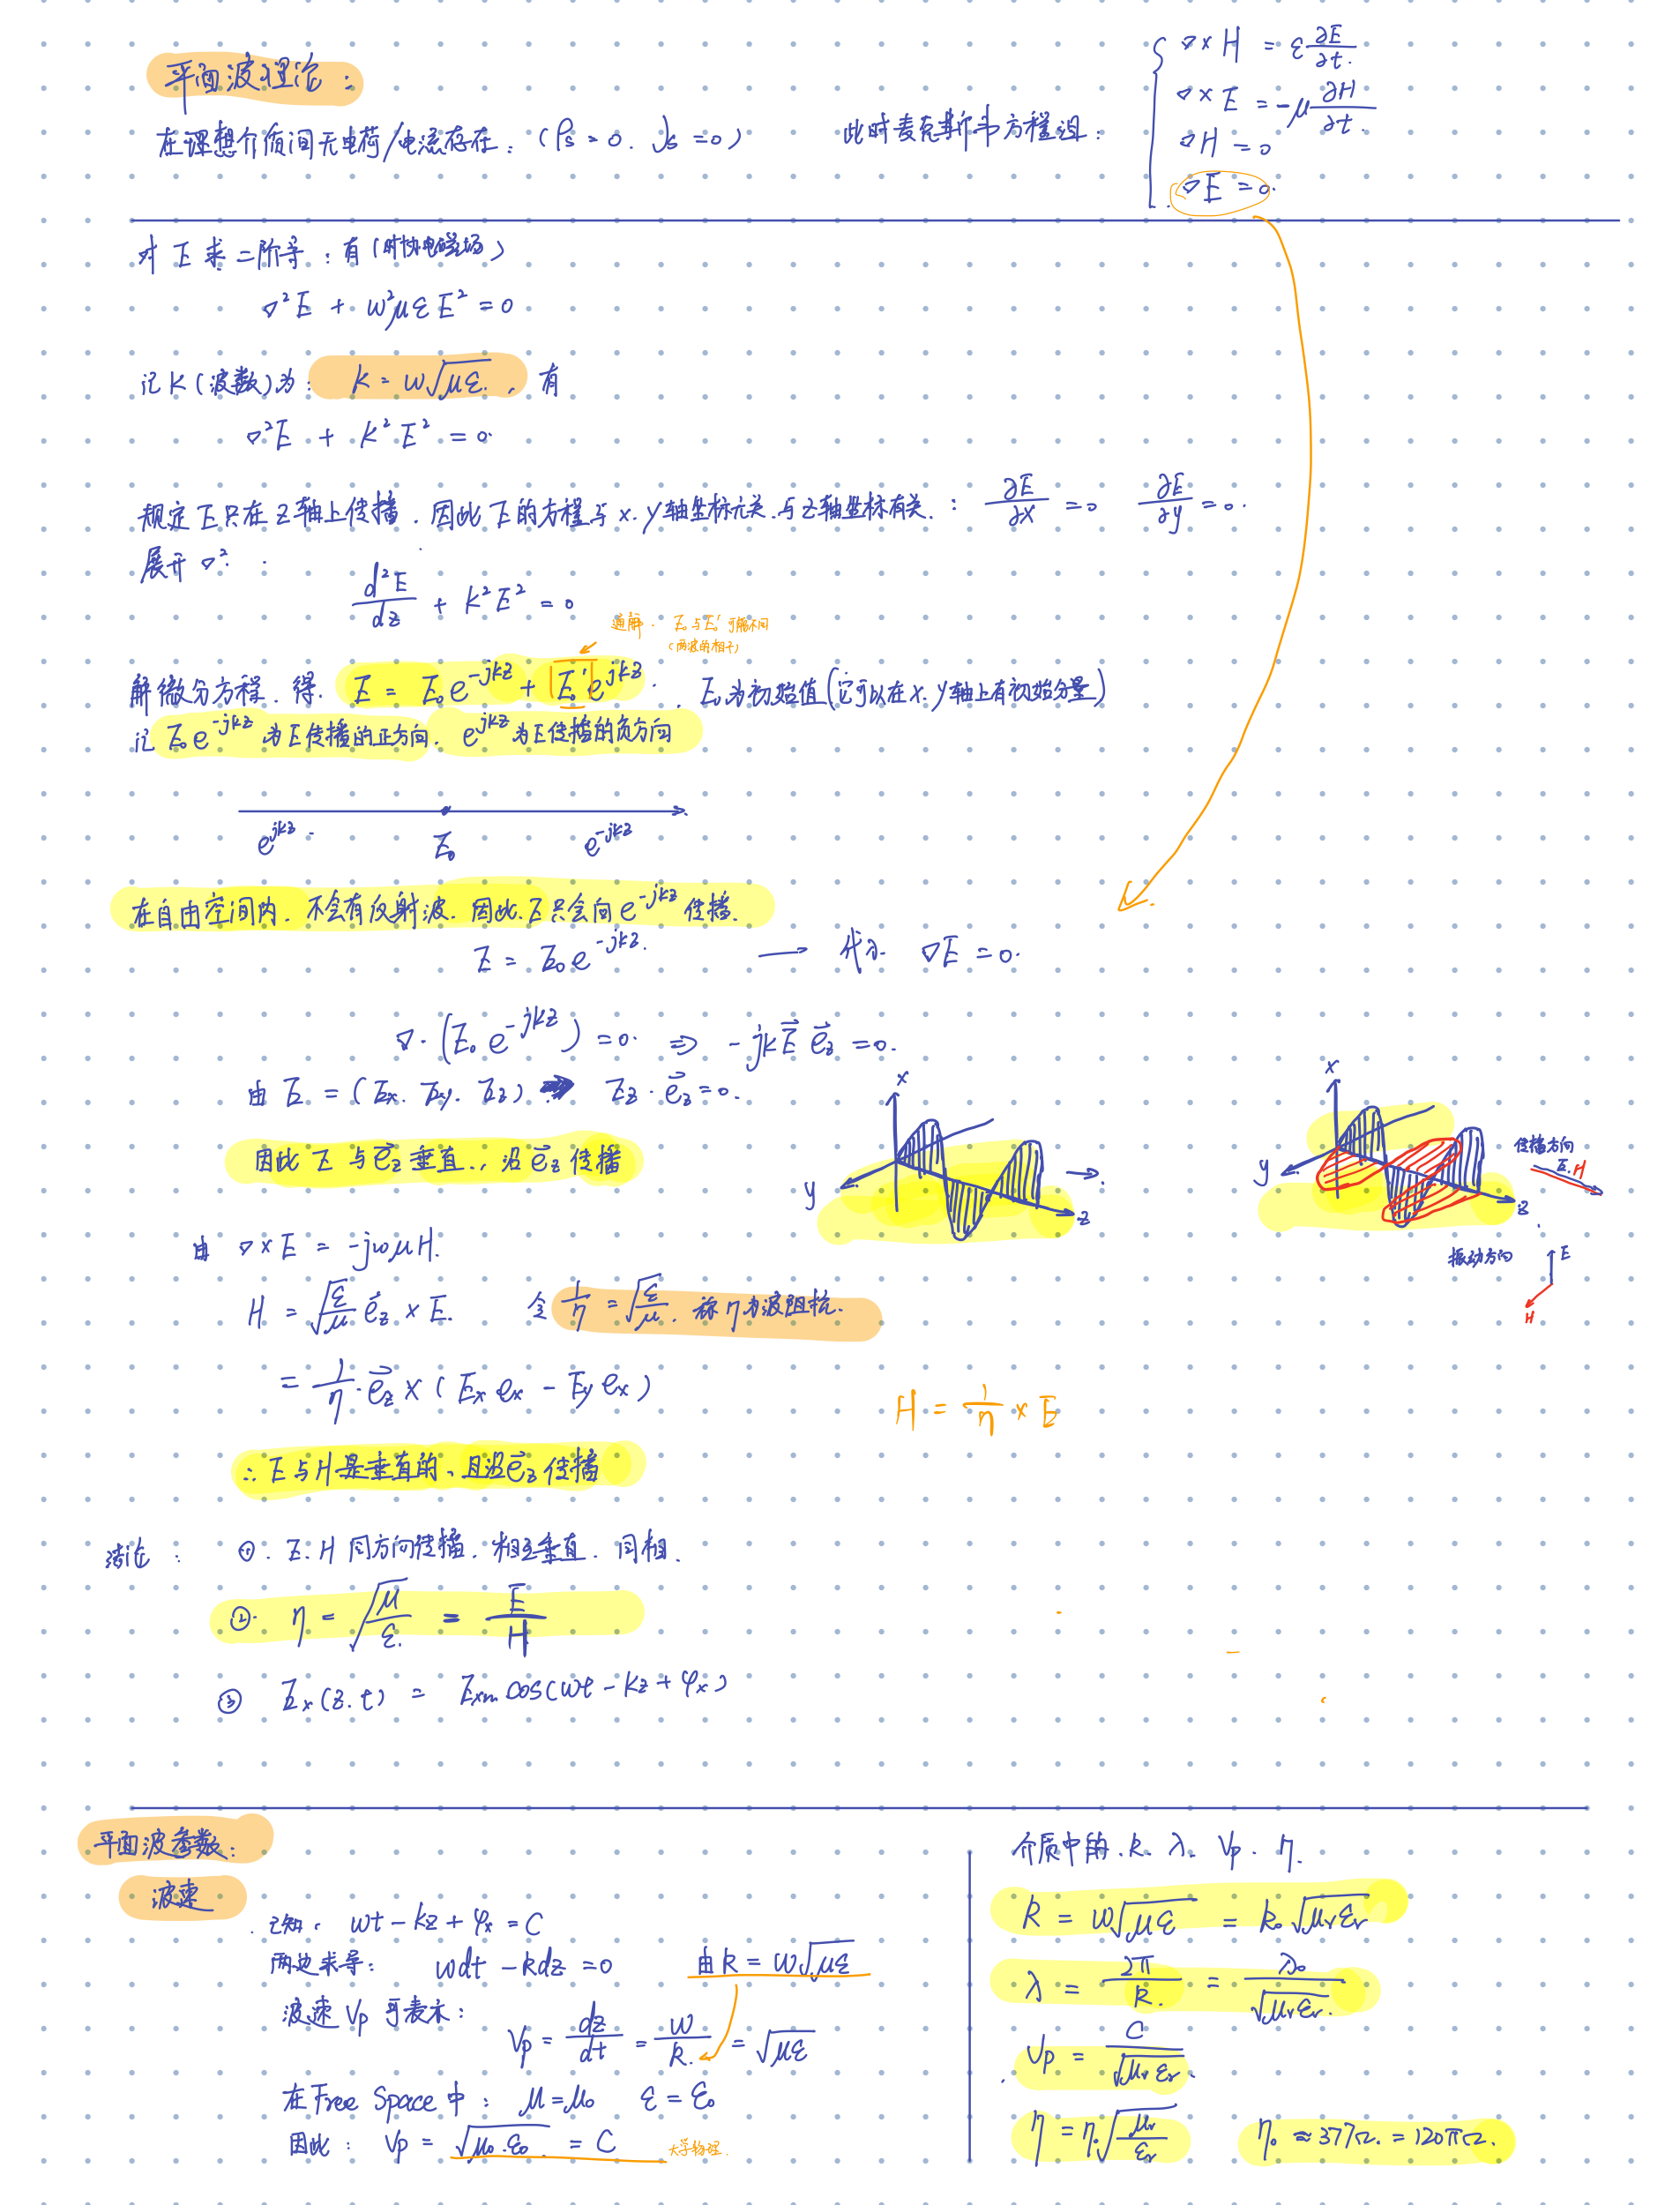 平面波理论：
在理想介质间无电荷/电流存在：(ρs = 0. Js = 0)
此时麦克斯韦方程组：
∇×H = ε ∂E/∂t.
∇×E = -μ ∂H/∂t.
∇H = 0
∇E = 0.
对 E 求二阶导：有(时协电磁场)
∇²E + w²με E² = 0
记 K (波数) 为：k = w√με. , 有
∇²E + K² E² = 0
规定 E 只在 z 轴上传播. 因此 E 的方程与 x. y 轴坐标无关. 与 z 轴坐标有关. : ∂E/∂x = 0 ∂E/∂y = 0.
展开 ∇² :
d²E/dz + K²E² = 0
通解. E₀与E₀' 可能不同
(两波的相干)
解微分方程. 得. E = E₀e^-jkz + E₀'e^jkz. . E₀为初始值(它可以在 x. y 轴上有初始分量)
记 E₀e^-jkz 为 E 传播的正方向. e^jkz 为 E 传播的负方向
e^jkz. E₀ e^-jkz
在自由空间内. 不会有反射波. 因此 E 只会向 e^-jkz 传播.
E = E₀e^-jkz. → 代入 ∇E = 0.
∇·(E₀ e^-jkz) = 0. ⇒ -jk E⃗ e⃗z = 0.
由 E = (Ex. Ey. Ez) Ez · e⃗z = 0.
因此 E 与 e⃗z 垂直., 沿 e⃗z 传播
x
y
z
x
y
z
传播方向
E. H
振动方向
E
H
由 ∇×E = -jωμH.
H = √ε/μ e⃗z × E. 令 1/η = √ε/μ. 称 η 为波阻抗.
= 1/η · e⃗z × (Ex ex - Ey ex)
H = 1/η × E
∴ E 与 H 是垂直的、且沿 e⃗z 传播
结论： ①. E. H 同方向传播. 相互垂直. 同相.
②. η = √μ/ε. = E/H
③ Ex(z. t) = Exm cos(wt - kz + φx)
平面波参数：
波速
已知： wt - kz + φx = C
两边求导： wdt - kdz = 0 由 k = w√με
波速 Vp 可表示：
Vp = dz/dt = w/k. = √με
在 Free Space 中： μ = μ₀ ε = ε₀
因此： Vp = √μ₀.ε₀. = C 大学物理.
介质中的. k. λ. Vp. η.
k = w√με = k₀√μrεr
λ = 2π/k. = λ₀/√μrεr.
Vp = C/√μrεr.
η = η₀√μr/εr η₀ ≈ 377Ω. = 120πΩ.